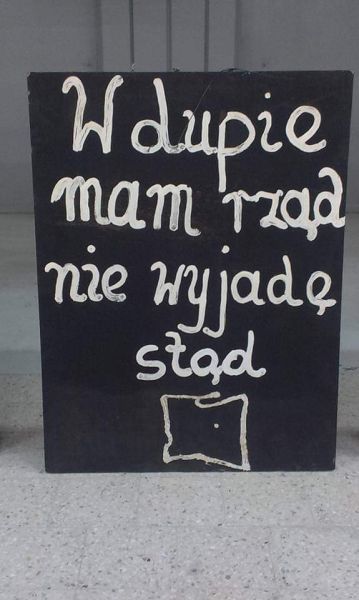 W dupie
mam rząd
nie wyjadę
stąd